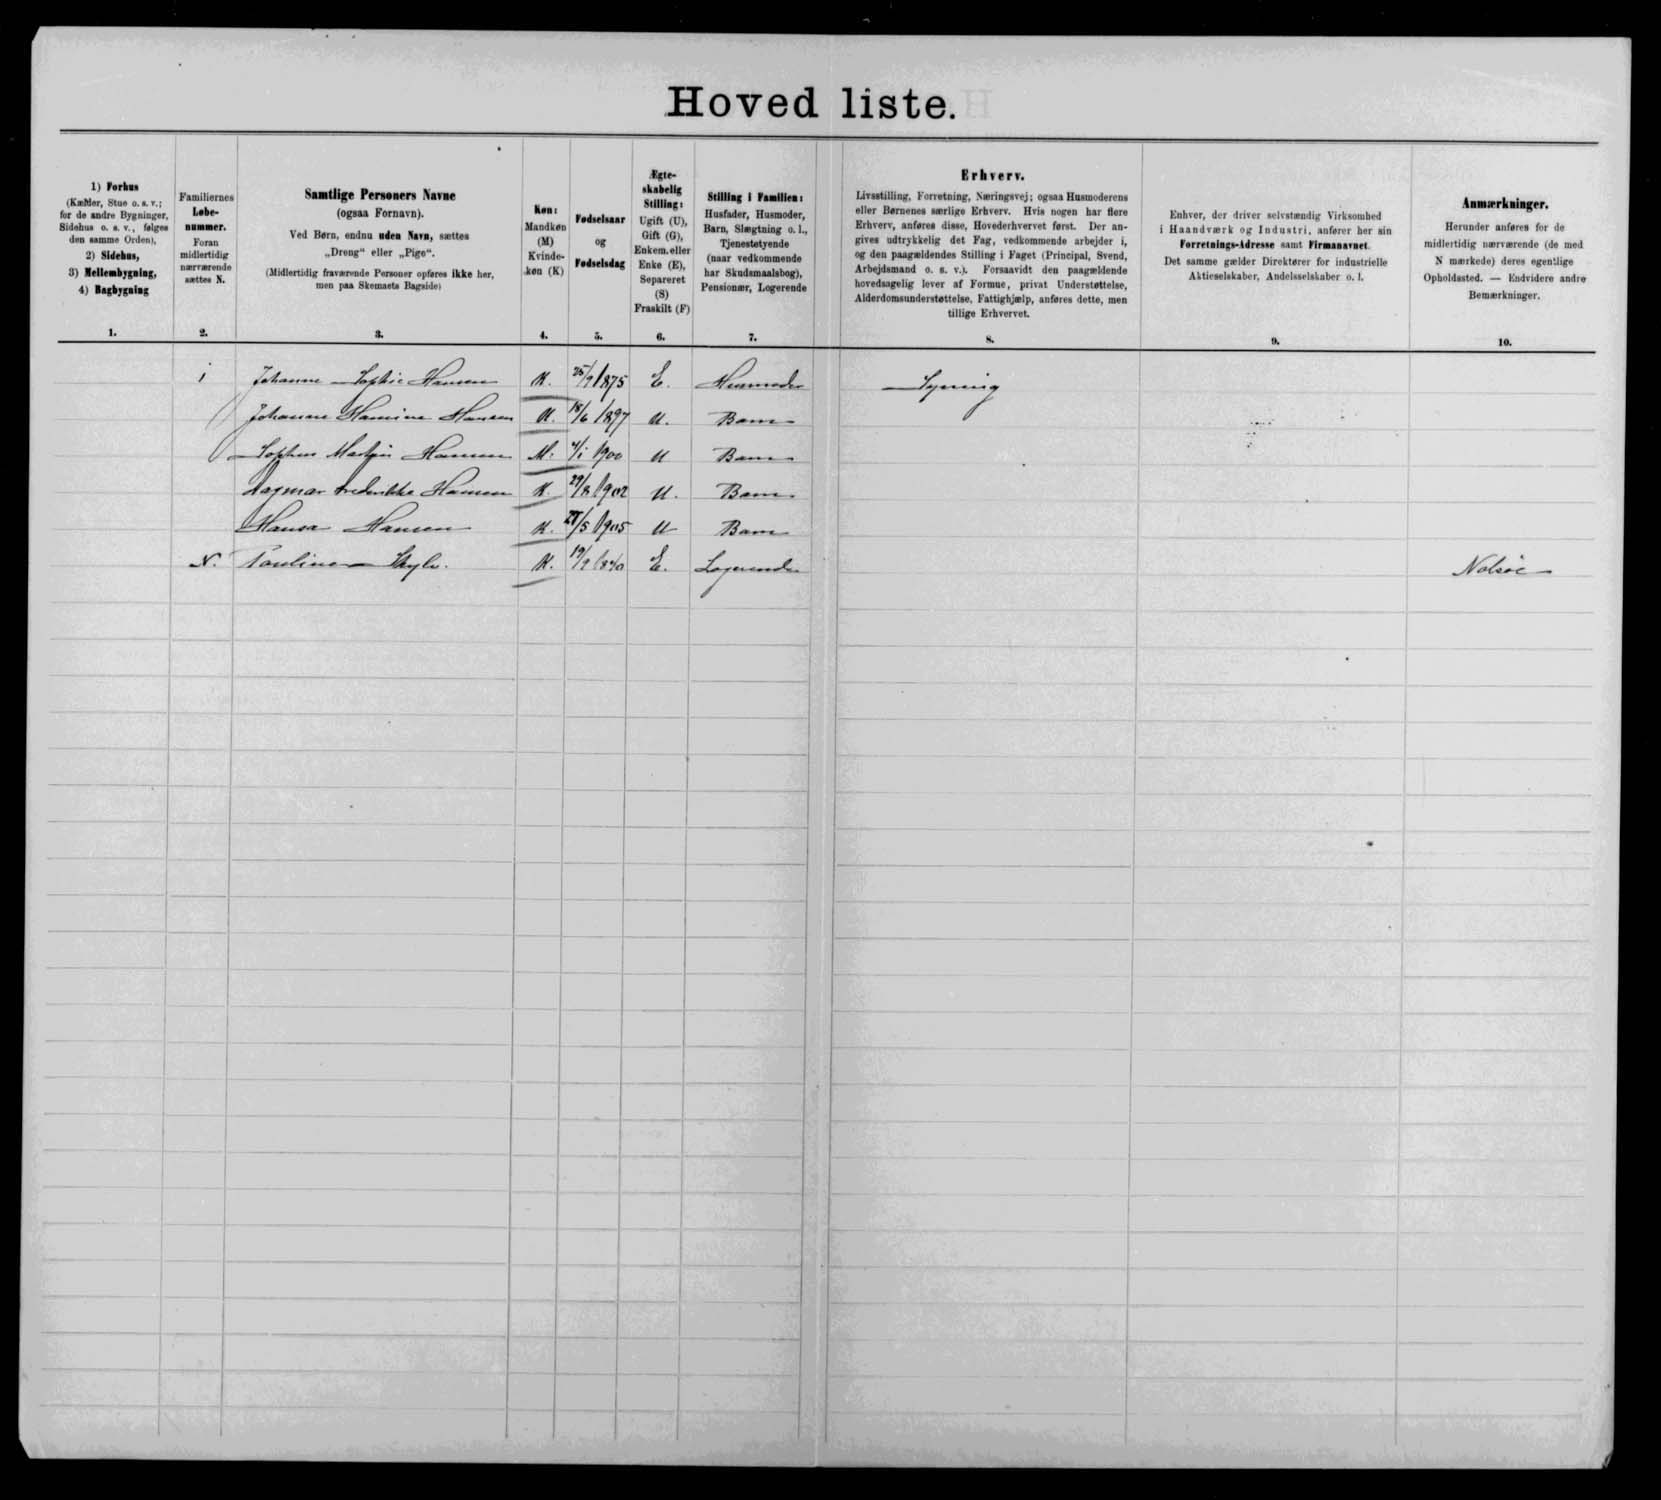 Hoved liste.
1) Forhus
(Kælder, Stue o. s. v.;
for de andre Bygninger,
Sidehus o. s. v., følges
den samme Orden),
2) Sidehus,
3) Mellembygning,
4) Bagbygning
1.
Familiernes
Løbe-
nummer.
Foran
midlertidig
nærværende
sættes N.
2.
Samtlige Personers Navne
(ogsaa Fornavn).
Ved Børn, endnu uden Navn, sættes
„Dreng“ eller „Pige“.
(Midlertidig fraværende Personer opføres ikke her,
men paa Skemaets Bagside)
3.
Køn:
Mandkøn
(M)
Kvinde-
køn (K)
4.
Fødselsaar
og
Fødselsdag
5.
Ægte-
skabelig
Stilling:
Ugift (U),
Gift (G),
Enkem. eller
Enke (E),
Separeret
(S)
Fraskilt (F)
6.
Stilling i Familien:
Husfader, Husmoder,
Barn, Slægtning o. l.,
Tjenestetyende
(naar vedkommende
har Skudsmaalsbog),
Pensionær, Logerende
7.
Erhverv.
Livsstilling, Forretning, Næringsvej; ogsaa Husmoderens
eller Børnenes særlige Erhverv. Hvis nogen har flere
Erhverv, anføres disse, Hovederhvervet først. Der an-
gives udtrykkelig det Fag, vedkommende arbejder i,
og den paagældendes Stilling i Faget (Principal, Svend,
Arbejdsmand o. s. v.). Forsaavidt den paagældende
hovedsagelig lever af Formue, privat Understøttelse,
Alderdomsunderstøttelse, Fattighjælp, anføres dette, men
tillige Erhvervet.
8.
Enhver, der driver selvstændig Virksomhed
i Haandværk og Industri, anfører her sin
Forretnings-Adresse samt Firmanavnet.
Det samme gælder Direktører for industrielle
Aktieselskaber, Andelsselskaber o. l.
9.
Anmærkninger.
Herunder anføres for de
midlertidig nærværende (de med
N mærkede) deres egentlige
Opholdssted. — Endvidere andre
Bemærkninger.
10.
1 Johanne Sophie Hansen K. 25/9 1875 E. Husmoder Syning
Johanne Hansine Hansen K. 18/6 1897 U. Barn
Sophus Martin Hansen M. 4/1 1900 U Barn
Dagmar Frederikke Hansen K. 29/8 1902 U. Barn
Hansa Hansen K. 28/5 1905 U Barn
N. Pauline K. 19/9 1840 E. Logerende Nolsøe